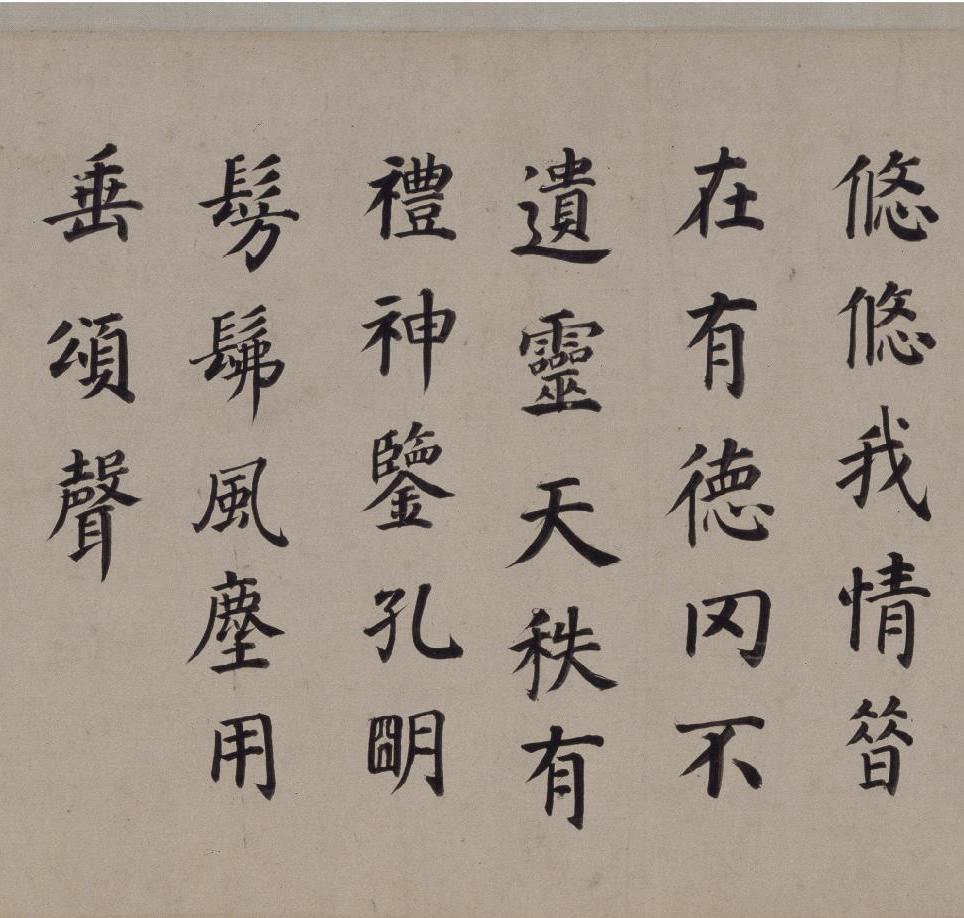 悠悠我情㫺
在有徳罔不
遺靈天秩有
禮神鑒孔朙
髣髴風塵用
垂頌聲